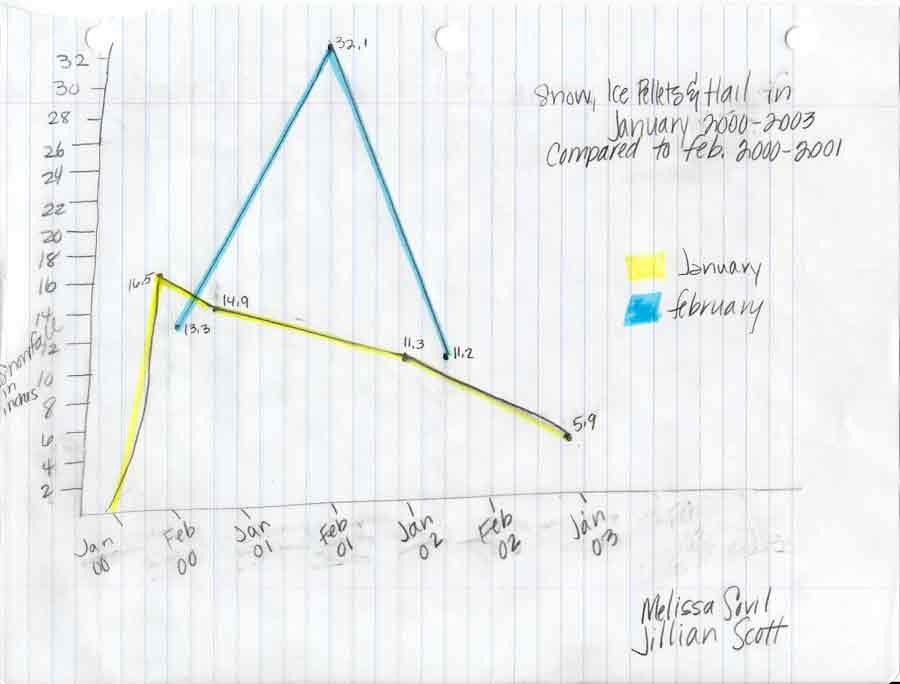 Snow, Ice Pellets & Hail in
January 2000-2003
Compared to Feb. 2000-2001
32
30
28
26
24
22
20
18
16
14
12
10
8
6
4
2
Snowfall
in
inches
32.1
16.5
14.9
13.3
11.3
11.2
5.9
January
February
Jan
00
Feb
00
Jan
01
Feb
01
Jan
02
Feb
02
Jan
03
Melissa
Jillian Scott